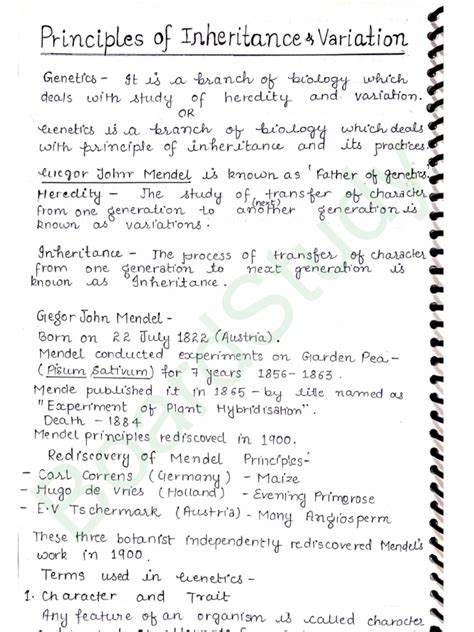 Principles of Inheritance & Variation
Genetics - It is a branch of biology which
deals with study of heredity and variation.
OR
Genetics is a branch of biology which deals
with principle of inheritance and its practices.
Gregor John Mendel is known as 'Father of genetics'.
Heredity - The study of transfer of character
from one generation to another (next) generation is
known as variations.
Inheritance - The process of transfer of character
from one generation to next generation is
known as Inheritance.
Gegor John Mendel -
Born on 22 July 1822 (Austria).
Mendel conducted experiments on Garden Pea -
(Pisum Sativum) for 7 years 1856 - 1863.
Mende published it in 1865 - by title named as
"Experiment of Plant Hybridisation".
Death - 1884
Mendel principles rediscoved in 1900.
Rediscovery of Mendel Principles -
- Carl Correns (Germany) - Maize
- Hugo de Vries (Holland) - Evening Primerose
- E.V Tschermark (Austria) - Mony Angiosperm
These three botanist independently rediscovered Mendel's
work in 1900.
Terms used in Genetics -
1. Character and Trait
Any feature of an organism is called character
BoardStudy